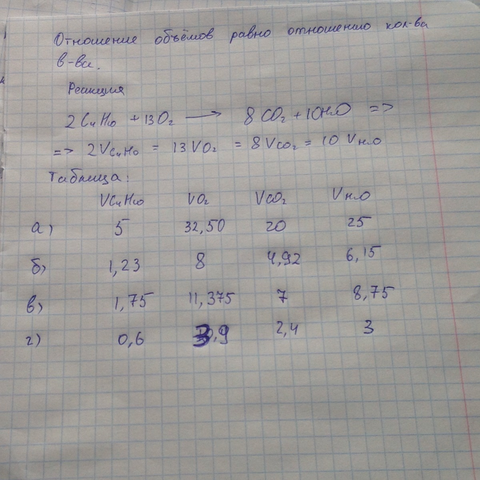 Отношение объёмов равно отношению кол-ва
в-ва.
Реакция
2C₄H₁₀ + 13O₂ ⟶ 8CO₂ + 10H₂O =>
=> 2VC₄H₁₀ = 13VO₂ = 8VCO₂ = 10VH₂O
Таблица:
VC₄H₁₀ VO₂ VCO₂ VH₂O
а) 5 32,50 20 25
б) 1,23 8 4,92 6,15
в) 1,75 11,375 7 8,75
г) 0,6 3,9 2,4 3